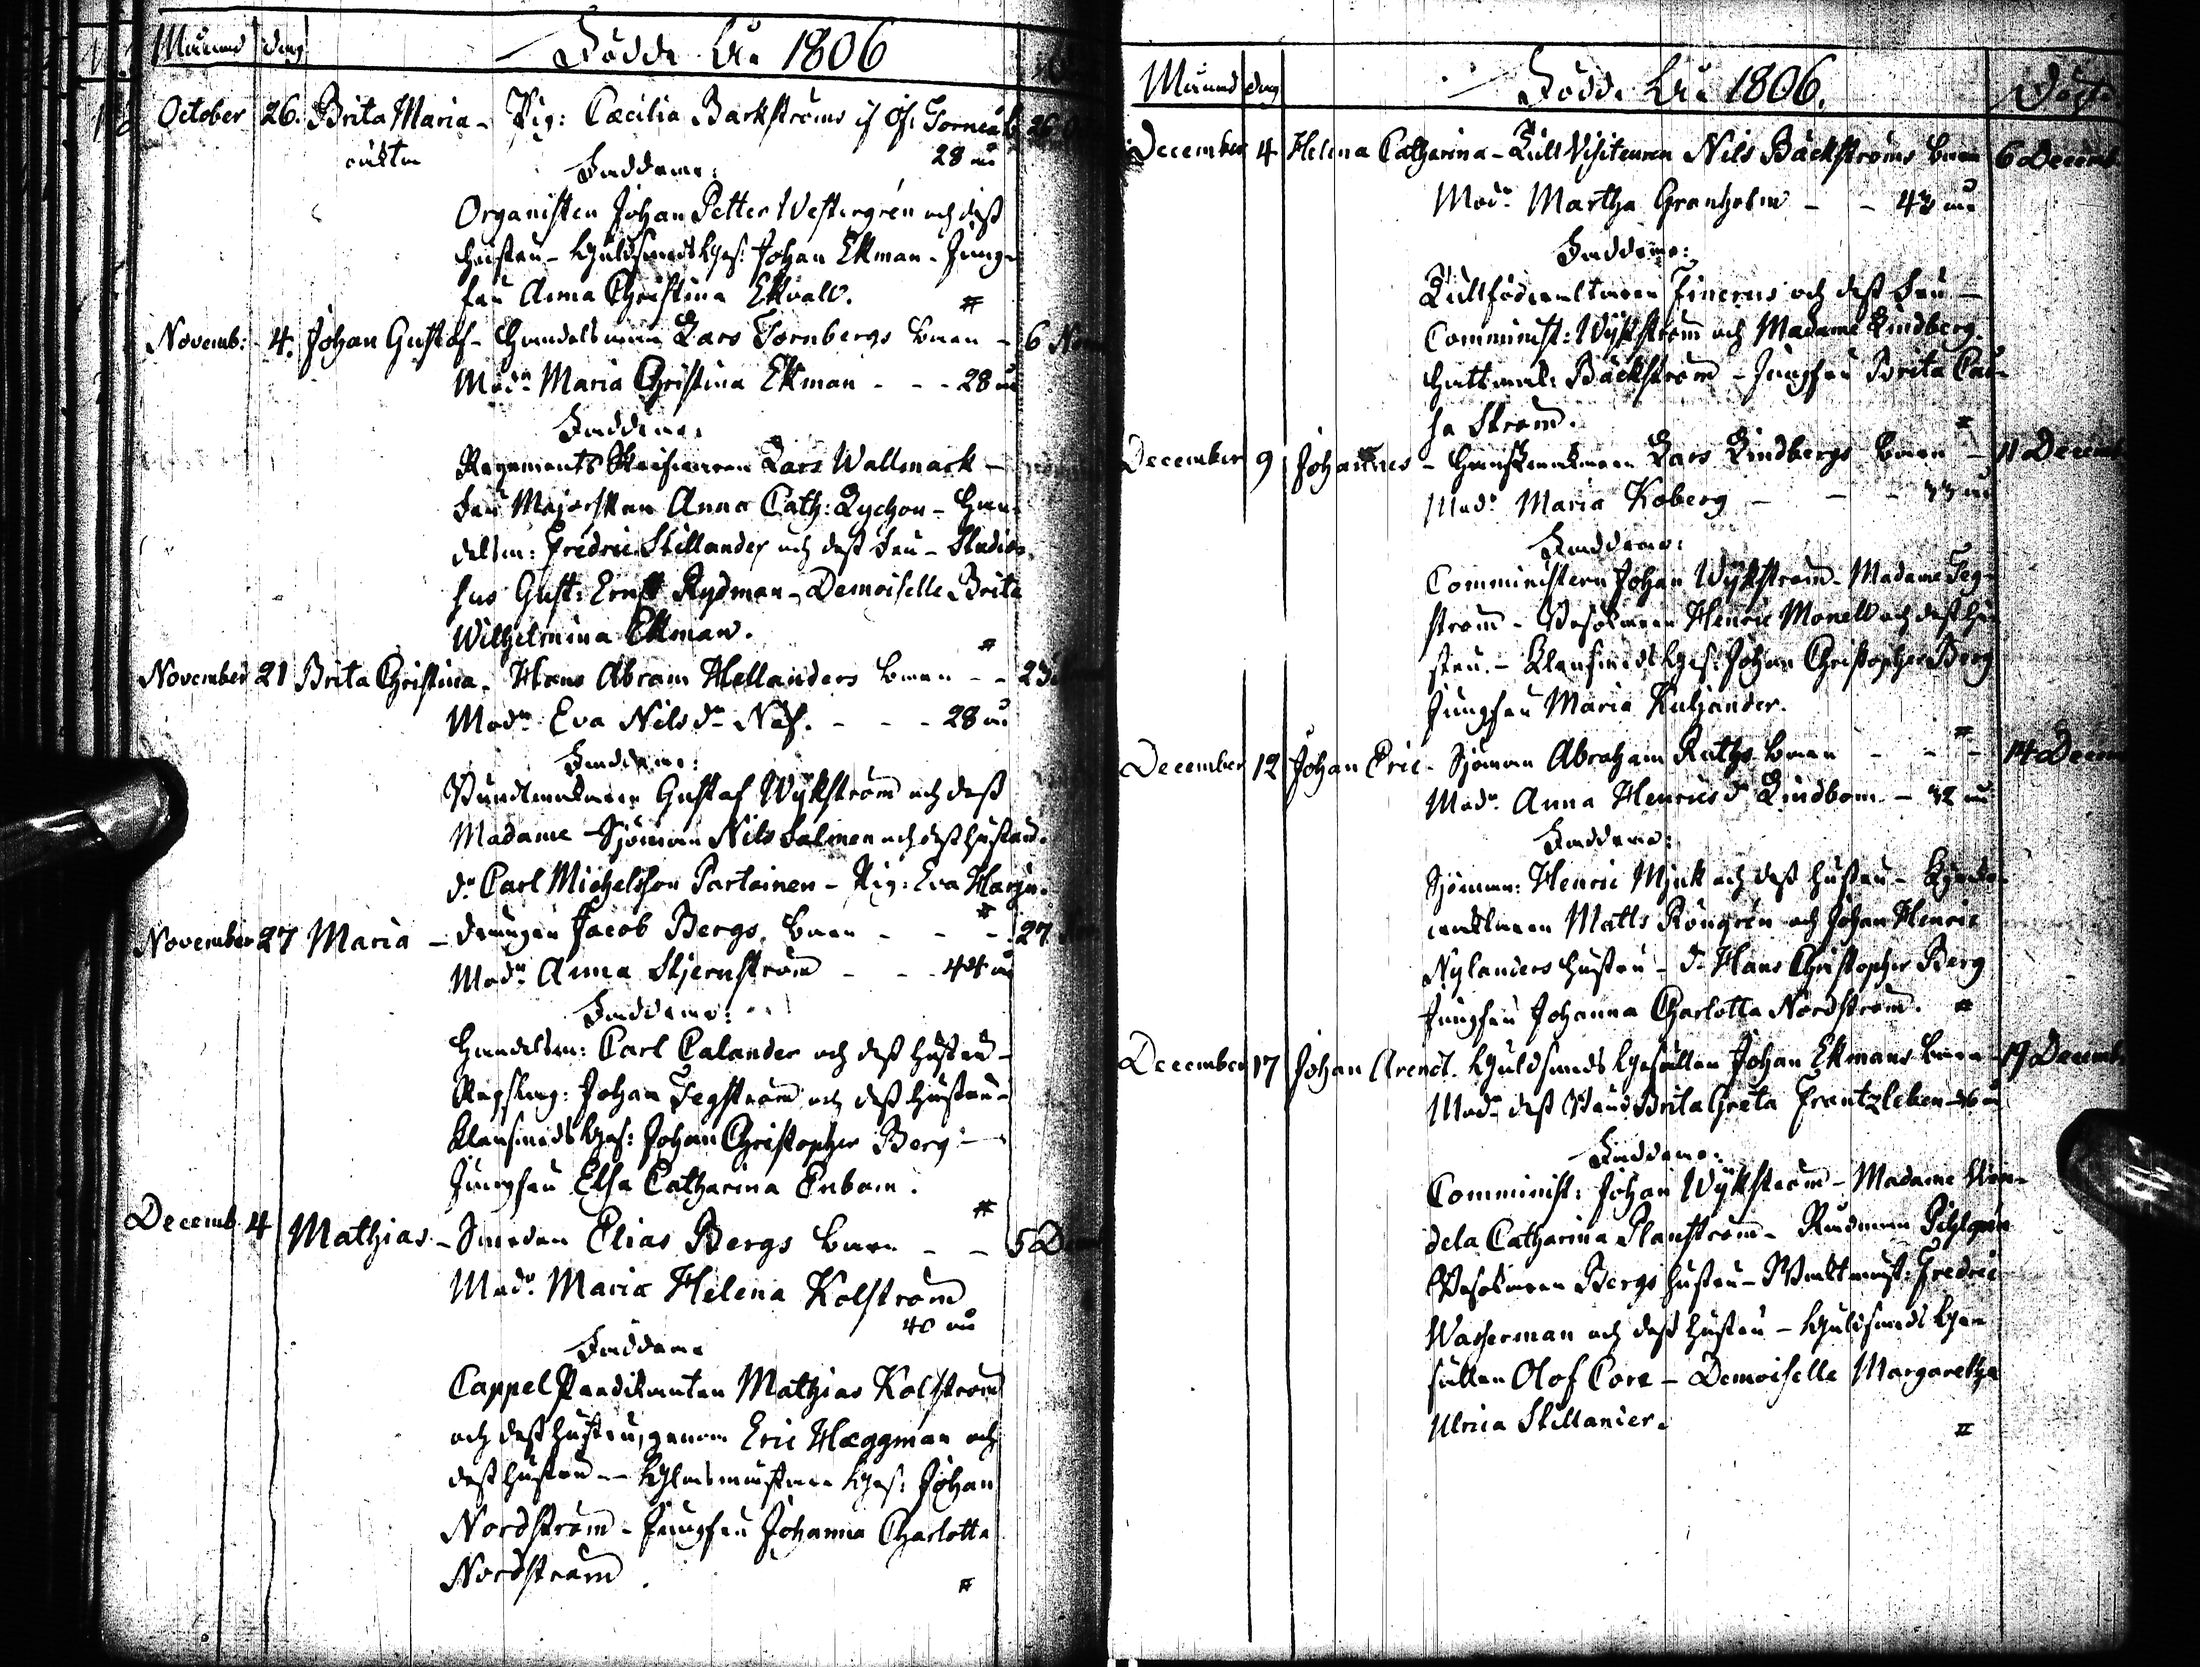 Månad dag Födde År 1806
October 26. Brita Maria - Pig: Cæcilia Barkströms if Öf. Torneå b. 26
oäkta 28 år
Faddrar:
Organisten Johan Petter Westergrén och dess
hustru - Guldsmeds Ges: Johan Ekman - Jung-
fru Anna Christina Ekvall. #
Novemb: 4. Johan Gustaf - Handelsman Lars Tornbergs barn - 6 Nov
Modn Maria Christina Ekman - - - 28 år
Faddrar
Regements Skrifvaren Lars Wallmark -
Fru Majorskan Anna Cath: Lychou - Han-
delsm: Fredric Stillander och dess Fru - Studio-
sus Gust: Ernst Rydman - Demoiselle Brita
Wilhelmina Ekman. #
November 21 Brita Christina - Hans Abram Hellanders barn - - 23
Modn Eva Nilsdr Näs. - - - 28 år
Faddrar:
Gustaf Wykström och dess
Madame - Sjöman Nils Salmen och dess hustru.
do Carl Michelsson Partainen - Pig: Eva Harju. #
November 27 Maria - Drängen Jacob Bergs barn - - - 27
Modn Anna Stjernström - - - 44 år
Faddrar:
Handelsm: Carl Calander och dess hustru -
Johan Tegström och dess hustru -
Klensmeds Ges: Johan Christopher Berg -
Jungfru Elsa Catharina Enbom. #
Decemb 4 Mathias - Smeden Elias Bergs barn - - 5 D
Modr Maria Helena Kolström
40 år
Faddrar
Cappel Predikanten Mathias Kolström
och dess hustru, genom Eric Hæggman och
dess hustru - Glasmästare Ges: Johan
Nordström - Jungfru Johanna Charlotta
Nordström. #
Månad dag Födde År 1806. Döpte
December 4 Helena Catharina - Tull Visiteuren Nils Bäckströms barn 6 Decemb
Modr Martha Granholm - - 43 år
Faddrar:
Tullförvaltaren Finerus och dess Fru -
Comminist: Wykström och Madame Lindberg.
Hattmak: Bäckström - Jungfru Brita Caj-
sa Ström. #
December 9 Johannes - Handskmakaren Lars Lindbergs barn - 11 Decemb
Modr Maria Koberg - - - 33 år
Faddrar:
Comministern Johan Wykström - Madame Teg-
ström - Henric Monell och dess hu-
stru - Klensmeds Ges: Johan Christopher Berg
Jungfru Maria Kuljander. #
December 12 Johan Eric - Sjöman Abraham Raths barn - - - 14 Decem
Modr Anna Henricsdr Lindbom - 32 år
Faddrar:
Sjöman: Henric Mjuk och dess hustru -
Matts Röngrén och Johan Henric
Nylanders hustru - Dr Hans Christopher Berg
Jungfru Johanna Charlotta Nordström. #
December 17 Johan Arendt. Guldsmeds Gesällen Johan Ekmans barn - 19 Decemb
Modr dess Brita Greta Frantzleben 36 år
Faddrar:
Comminist: Johan Wykström - Madame Wen-
dela Catharina Planström - Rådman Pihlgren
Bergs hustru - Fredric
Wasserman och dess hustru - Guldsmeds Ge-
sällen Olof Core - Demoiselle Margaretha
Ulrica Stillanier. #